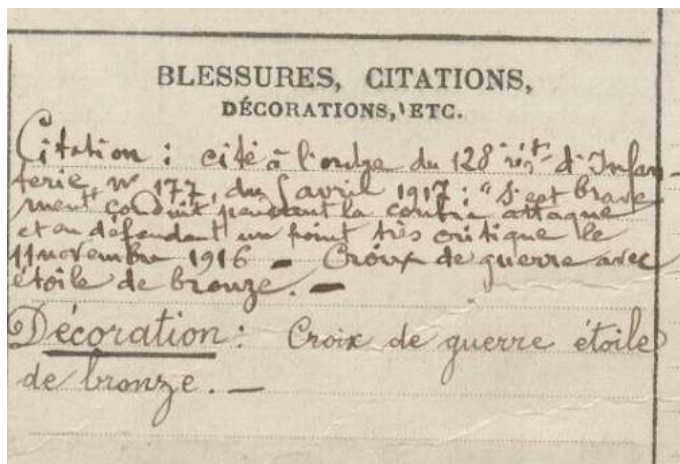 BLESSURES, CITATIONS,
DÉCORATIONS, ETC.
Citation : cité à l'ordre du 128 régt d'Infan-
terie, n° 177, du 5 avril 1917 : "S'est brave
ment conduit pendant la contre attaque
et en défendant un point très critique le
11 novembre 1916 — Croix de guerre avec
étoile de bronze. —
Décoration : Croix de guerre étoile
de bronze. —